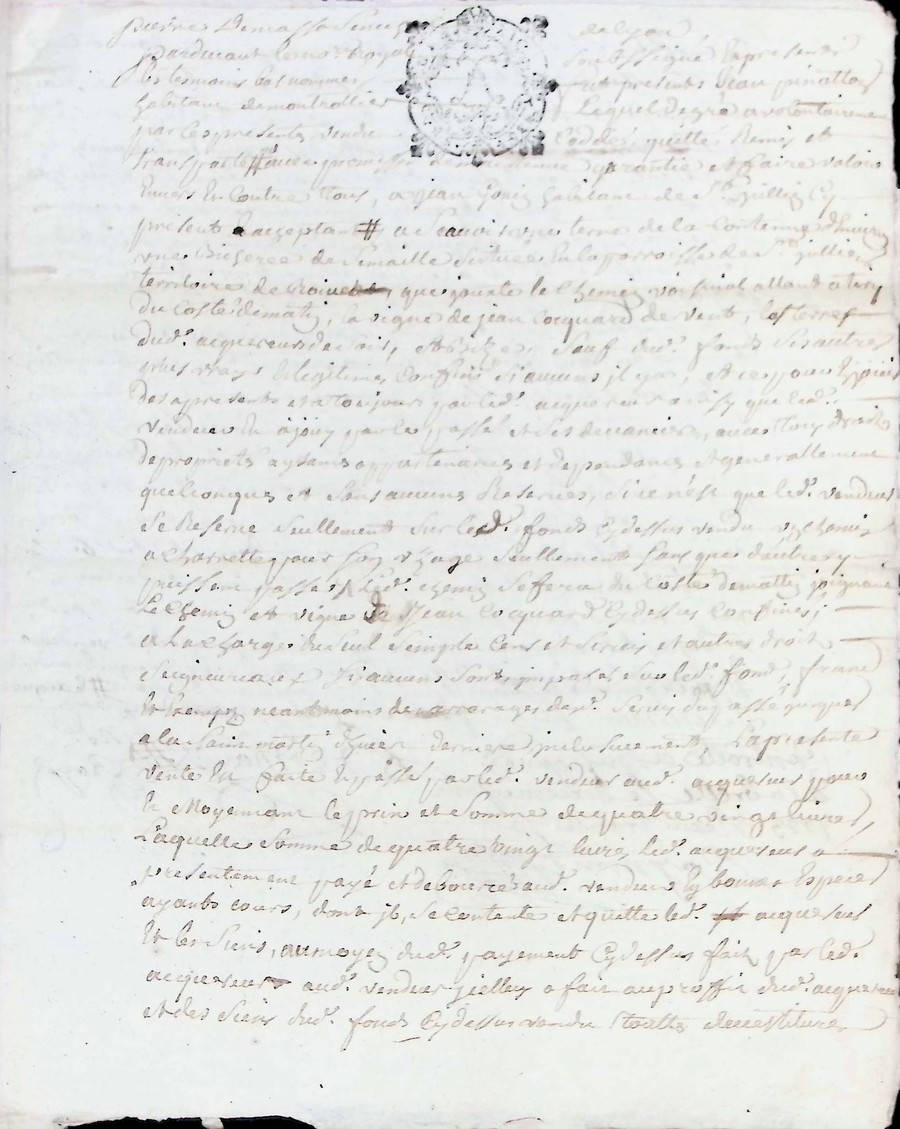 pierre de lyon
pardevant le no.re Royal soubssigné Et presents
les tesmoins bas nommes fut presents Jean pinatton
habitant de montrottier Lequel de gré a volontairement
par les presentes vendu Ceddé, quitté Remis et
transporté avec promesse de garantie et faire valoir
Envers Et Contre Tous, a jean habitant de St. Jullien Cy
present Et acceptant # a Scavoir une terre de la Contenue d'Environ
une Bicherée de Semaille Scituée En la parroisse de St. Jullien
territoire de que jouxte le Chemin voisinal allant a
du Costé de matin, la vigne de jean Cocquard de vent, les terres
dud. acquereur de soir, et bize, Sauf dud. fond Ses autres
plus vrays Et legitimes Confins Si aucuns il y a, et ce pour En jouir
des a present et a toujours par led. acquereur ainsy que led.
vendeur En a jouy par le passé et ses devanciers, avec tous droits
de proprieté aysances appartenances et dependances et generallement
quelconques et Sans aucune Reserve, Si ce n'est que led. vendeur
Se Reserve Seullement Sur led. fond Cydessus vendu un chemin
a charrette pour Son uzage Seullement Sans que d'autres y
puissent passer Led. chemin Se ferat du Costé de matin joignant
Le chemin et vigne de Jean Cocquard Cydessus Confinés,
a La charge du Seul Simple Cens et Servis et autres droits
Seigneuriaux Si aucuns Sont imposés Sur led. fond, franc
Et Exempt neantmoins de arrerages desd. Servis du passé jusques
a la Saint martin d'hiver derniere inclusivement, La presente
vente Est faite Et passée par led. vendeur aud. acquereur pour
Et Moyennant le prix et Somme de quatre vingt livres,
Laquelle Somme de quatre vingt livres, led. acquereur a
presentement payé et debourcé aud. vendeur En bonnes Especes
ayants cours, dont il, Se contente et quitte led. acquereur
Et les Siens, au moyen dud. payement Cydessus fait par led.
acquereur aud. vendeur Jcelluy a fait au proffit dud. acquereur
et des Siens dud. fond Cydessus vendu Toutte devestiture